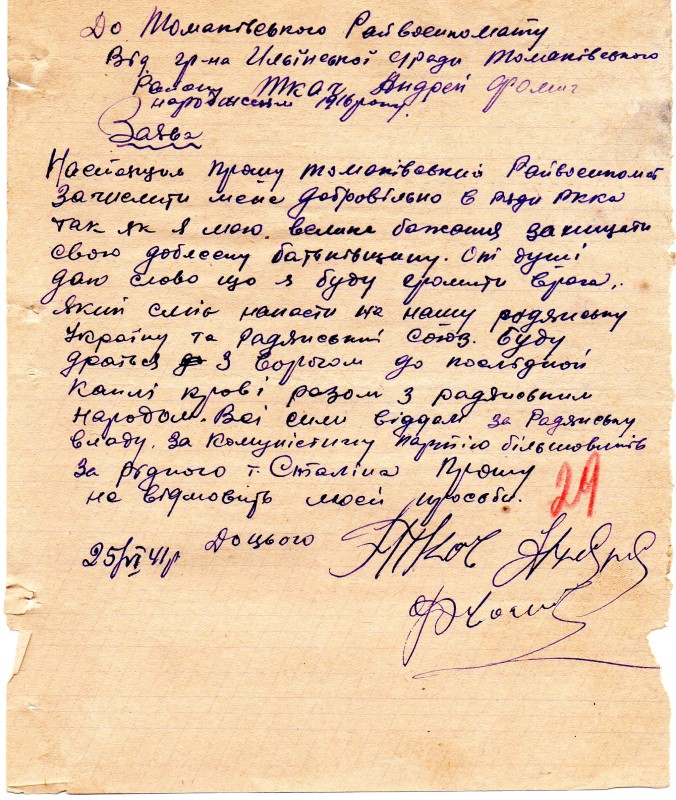 До Томаківського Райвоєнкомату
Від гр-на Ильїнської с/ради Томаківського
Району Ткач Андрей Фомич
народження 1916 року.
Заява
Настоящим прошу томаківський Райвоєнкомат
зачислити мене добровільно в ряди РККА
так як я маю велике бажання захищати
свою доблесну батьківщину. Опі душі
даю слово що я буду громити врага,
який смів напасти на нашу родянську
Україну та Радянський союз. Буду
драться з ворогом до послідной
каплі крові разом з радянським
народом. Всі сили віддам за Радянську
владу. За комуністичну партію більшовиків
За рідного т. Сталіна Прошу
не відмовить моей просьби.
29
До цього Ткач Андрей
25/VI 41р
Фомич